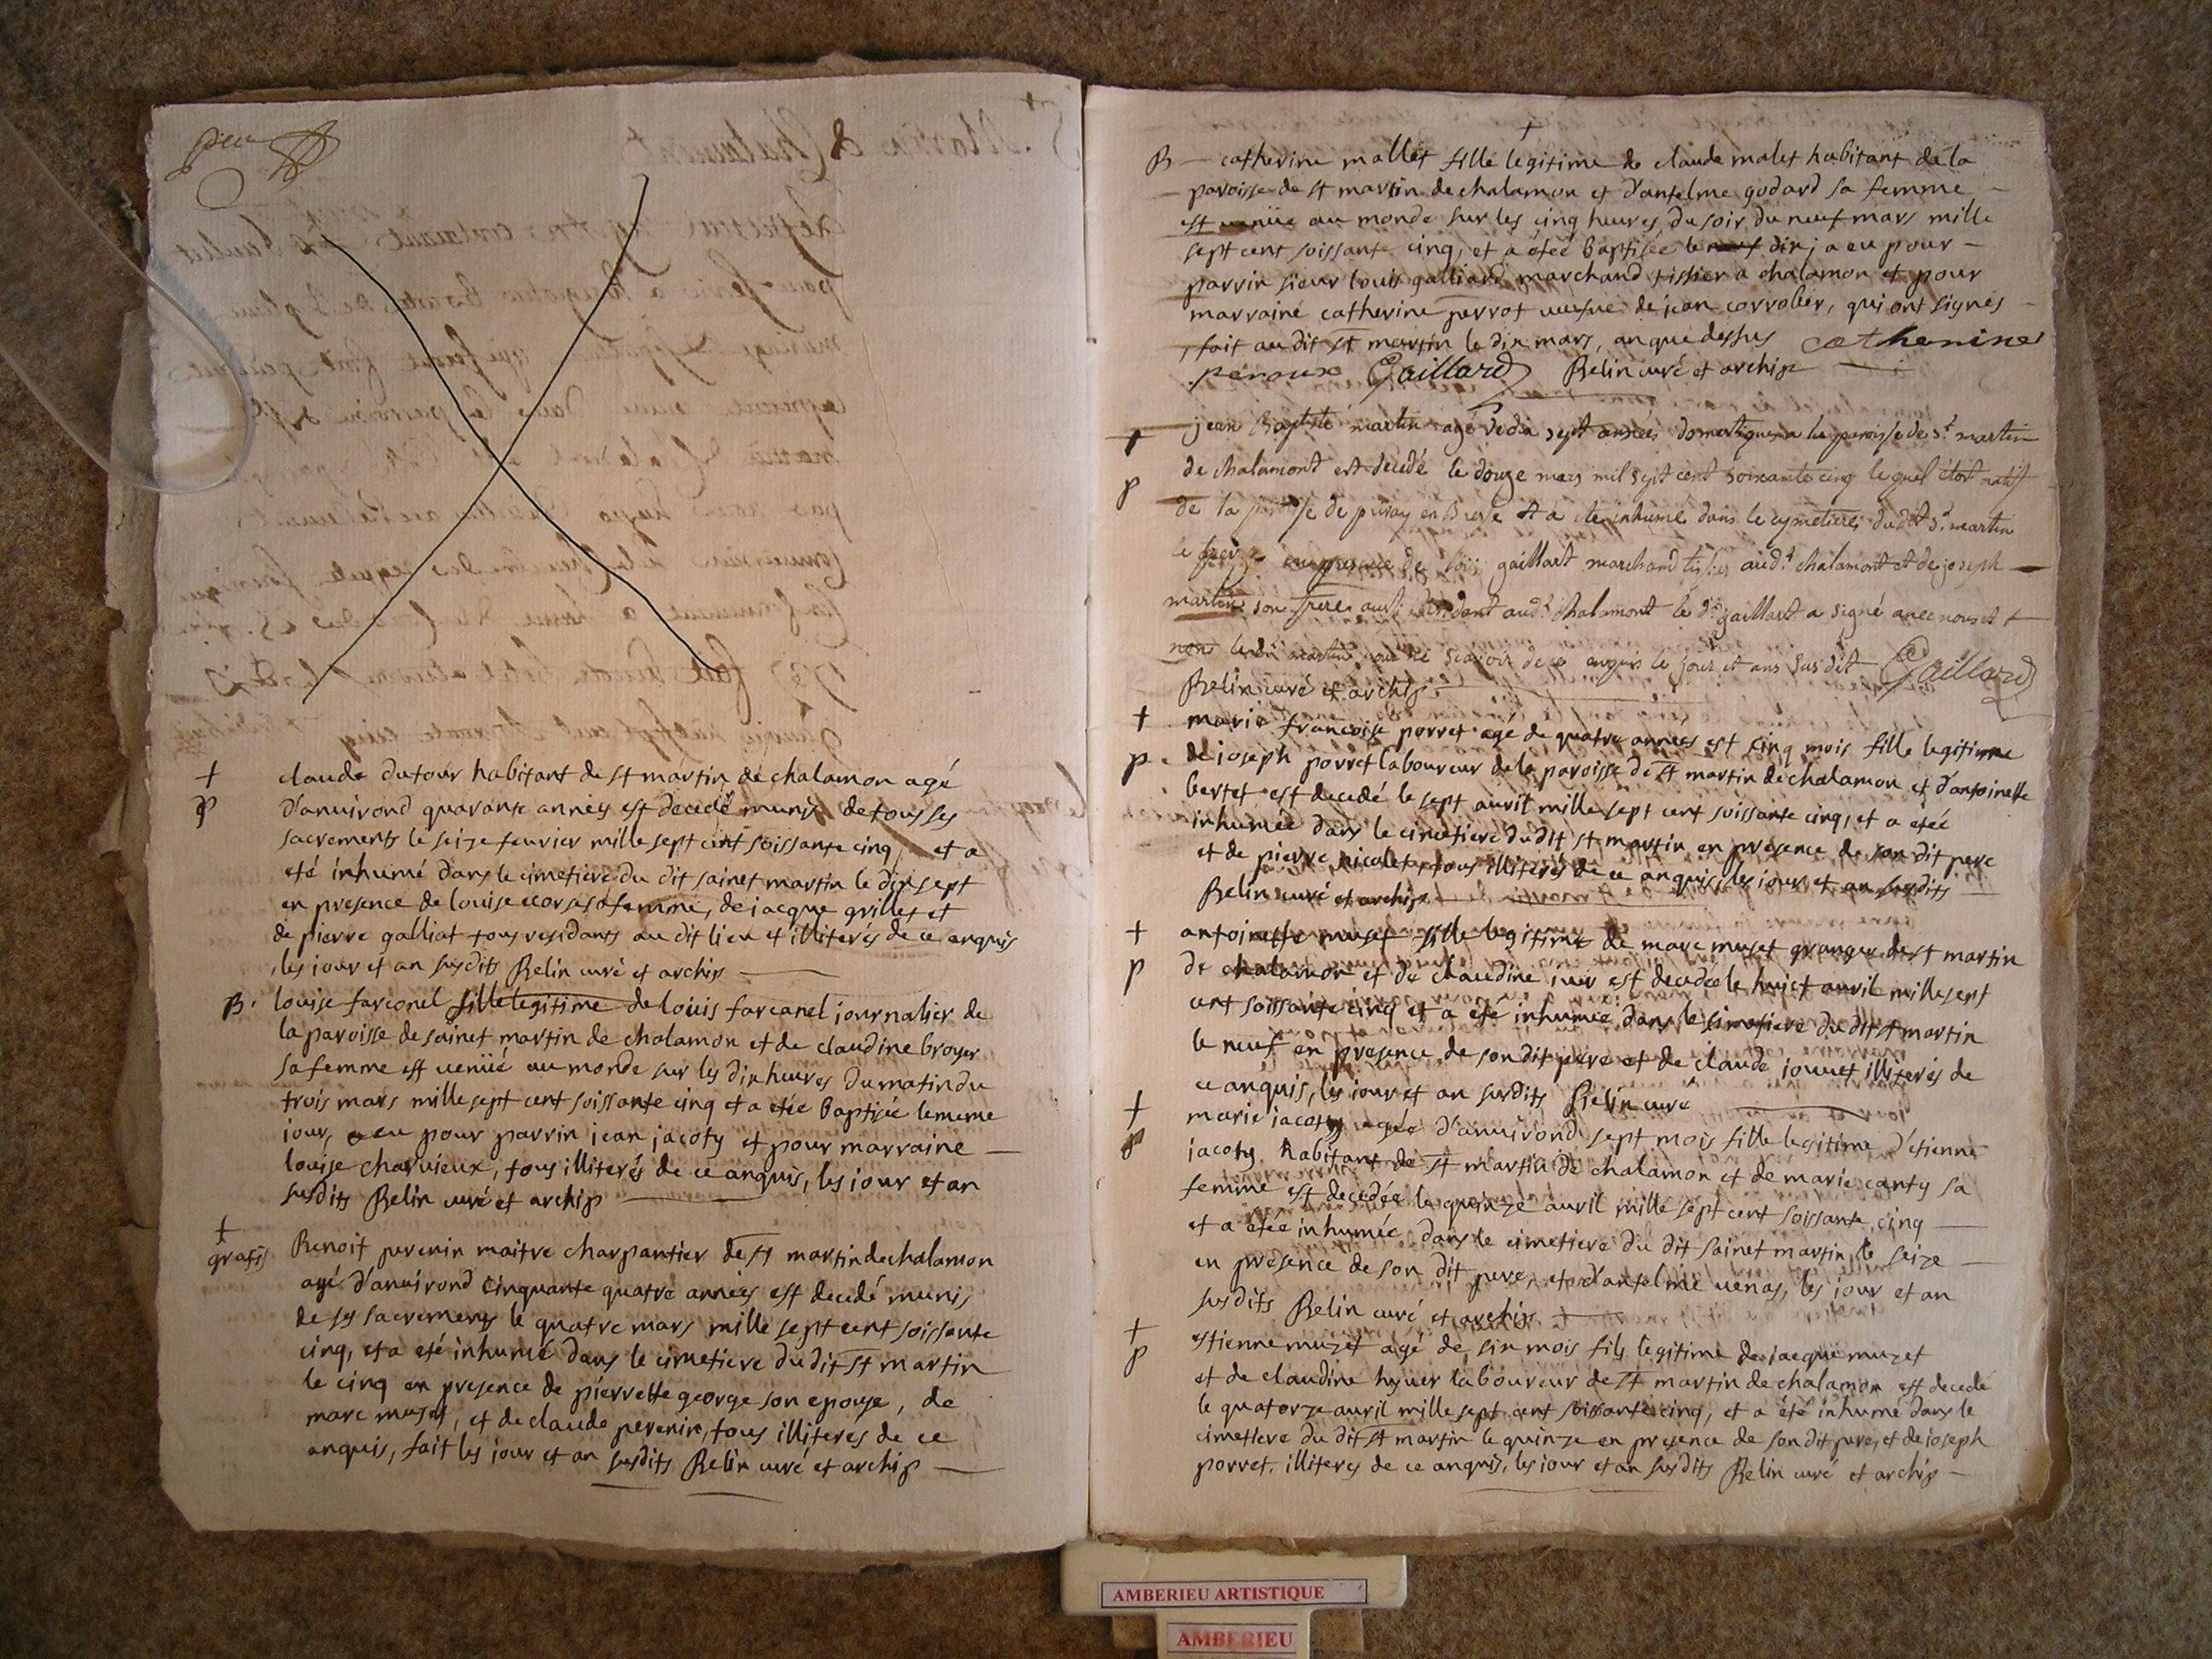 ✝ claude dutour habitant de st martin de chalamon agé
p d'anuirond quarante années est decedé munis de tous ses
sacrements le seize feurier mille sept cent soissante cinq, et a
eté inhumé dans le cimetiere du dit sainct martin le dix sept
en presence de louise corsesa femme, de jacque grillet et
de pierre galliat tous residants au dit lieu et illiterés de ce anquis
les jour et an susdits Belin curé et archip
B. louise farconel fille legitime de louis farcanel journalier de
la paroisse de sainct martin de chalamon et de claudine broyer
sa femme est venüé au monde sur les dix heures du matin du
trois mars mille sept cent soissante cinq et a etée baptisée le meme
jour, a eu pour parrin jean jacoty et pour marraine
louise charuieux, tous illiterés de ce anquis, les jour et an
susdits Belin curé et archip
✝ gratis Benoit perenin maitre charpantier de st martin de chalamon
agé d'anuirond cinquante quatre années est decedé munis
de ses sacrements le quatre mars mille sept cent soissante
cinq, et a eté inhumé dans le cimetiere du dit st martin
le cinq en presence de pierrette george son epouse, de
marc muset, et de claude perenin, tous illiteres de ce
anquis, fait les jour et an susdits Belin curé et archip
B catherine mallet fille legitime de claude malet habitant de la
paroisse de st martin de chalamon et d'antelme godard sa femme
est venüe au monde sur les cinq heures du soir du neuf mars mille
sept cent soissante cinq, et a éteé baptisée le neuf dix j a eu pour
parrin sieur louis galliard marchand tissier a chalamon et pour
marraine catherine perrot ueufue de jean corrober, qui ont signés
fait au dit st martin le dix mars, an que dessus catherine
peroux Gaillard Belin curé et archip
✝ jean Baptiste martin agé de dix sept années domestique a la paroisse de st martin
p de chalamont est decedé le douze mars mil sept cent soixante cinq le quel étoit natif
de la paroisse de en Bresse et a ete inhumé dans le cymetiere du dit st martin
le en presence de loüis gaillart marchand tissier aud.t chalamont et de joseph
martin son frere aussi residant aud.t chalamont le d.t gaillart a signé avec nous et
non led. martin pour ne scavoir de ce enquis le jour et ans susdit Gaillard
Belin curé et archip
✝ marie francoise porret agé de quatre années est cinq mois fille legitime
p. de joseph porret laboureur de la paroisse de st martin de chalamon et d'antoinette
bertet est decedé le sept auril mille sept cent soissante cinq, et a etée
inhumée dans le cimetiere du dit st martin en presence de son dit pere
et de pierre nicolet, tous illiterés de ce anquis, les jour et an susdits
Belin curé et archip
✝ antoinette muset fille legitime de marc muset granger de st martin
p de chalamon et de claudine iuer est decedée le huict auril mille sept
cent soissante cinq et a eté inhumée dans le cimetiere du dit st martin
le neuf en presence de son dit pere et de claude jouuet illiterés de
ce anquis, les jour et an susdits Belin curé
✝ marie jacoty agée d'anuirond sept mois fille legitime d'etienne
p jacoty habitant de st martin de chalamon et de marie canty sa
femme est decedée le quinze auril mille sept cent soissante cinq
et a etée inhumée dans le cimetiere du dit sainct martin le seize
en presence de son dit pere, et d'antelme uenas, les jour et an
susdits Belin curé et archip
✝ etienne muzet agé de six mois fils legitime de jacque muzet
p et de claudine hyuer laboureur de st martin de chalamon est decedé
le quatorze auril mille sept cent soissante cinq, et a été inhumé dans le
cimetiere du dit st martin le quinze en presence de son dit pere, et de joseph
porret, illiteres de ce anquis, les jour et an susdits Belin curé et archip
AMBERIEU ARTISTIQUE
AMBERIEU